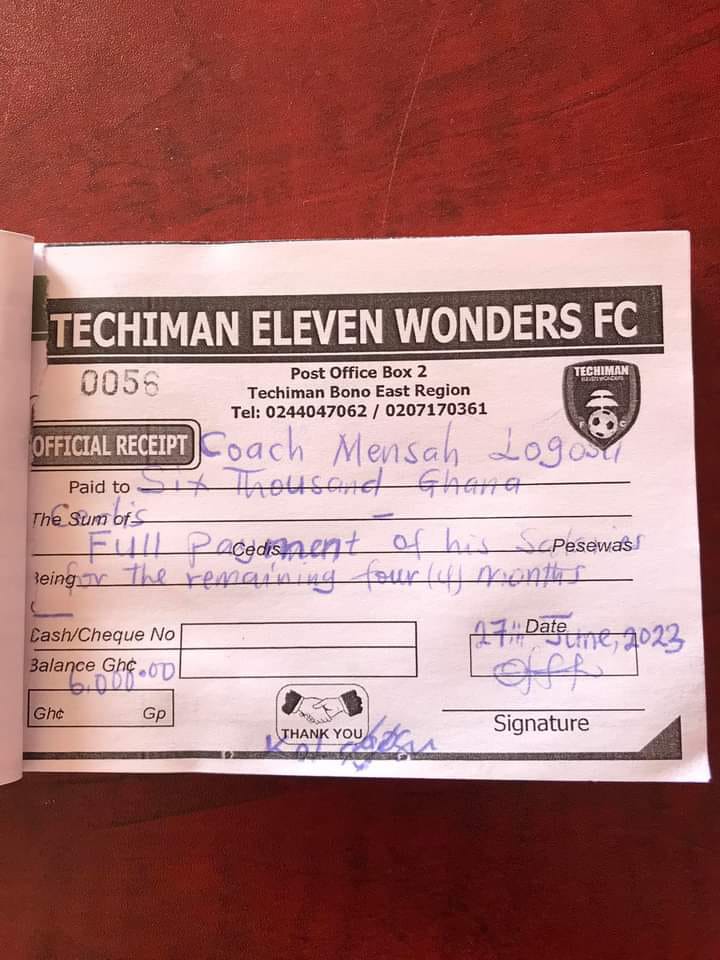 TECHIMAN ELEVEN WONDERS FC
0056
Post Office Box 2
Techiman Bono East Region
Tel: 0244047062 / 0207170361
TECHIMAN
ELEVEN WONDERS
F C
OFFICIAL RECEIPT
Coach Mensah Logosu
Paid to Six Thousand Ghana
The Sum of Cedis
Full Payment of his Salaries
Cedis Pesewas
Being for the remaining four (4) months
Date
27th June, 2023
Cash/Cheque No
Balance Gh¢
6,000.00
Gh¢ Gp
THANK YOU
Signature